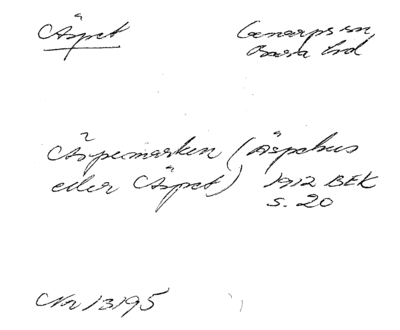 Äspet
Genarps sn,
Bara hd
Äspemarken (Äspehus
eller Äspet) 1912 BEK
s. 20
Nr 13195